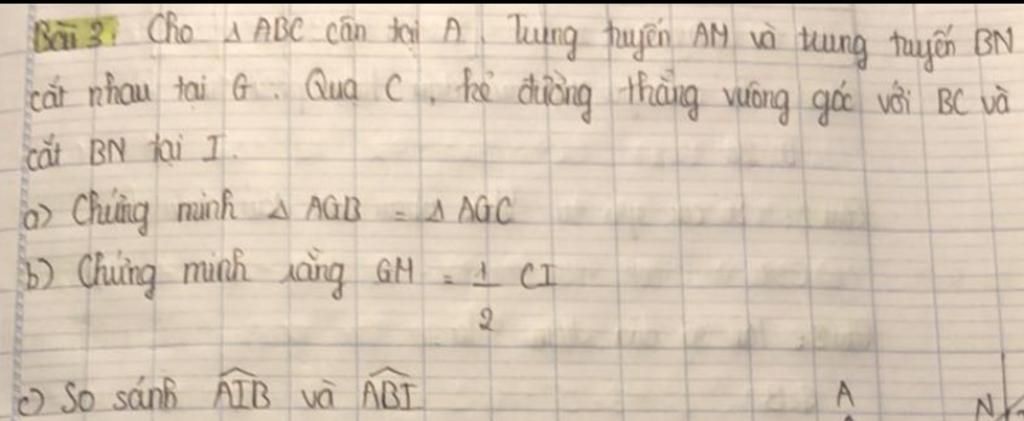 Bài 3: Cho Δ ABC cân tại A. Trung tuyến AM và trung tuyến BN
cắt nhau tại G. Qua C, kẻ đường thẳng vuông góc với BC và
cắt BN tại I.
a) Chứng minh Δ AGB = Δ AGC
b) Chứng minh rằng GM = 1/2 CI
c) So sánh \widehat{AIB} và \widehat{ABI}
A N